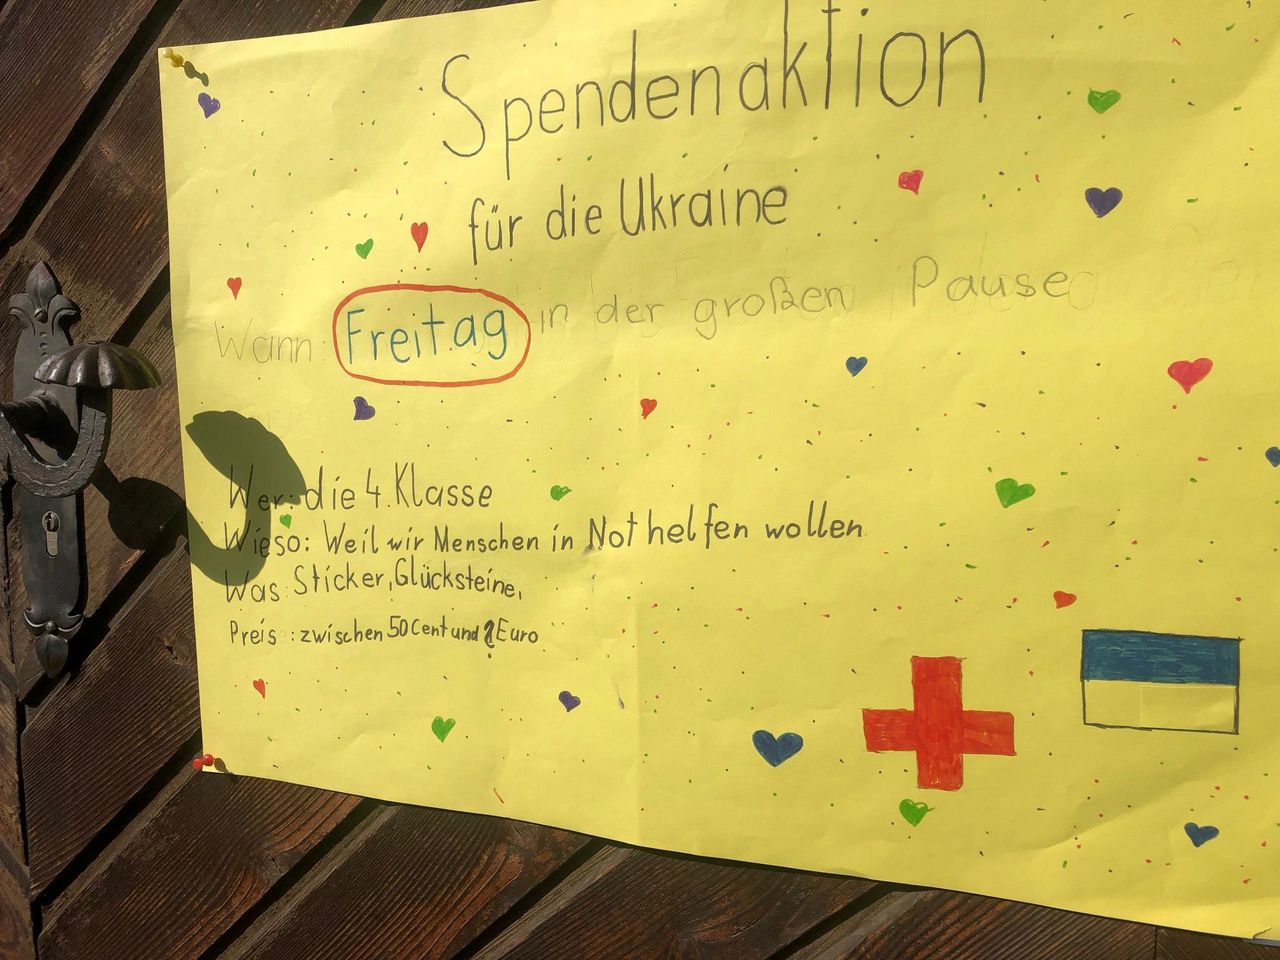 Spendenaktion
für die Ukraine
Wann: Freitag in der großen Pause
Wer: die 4. Klasse
Wieso: Weil wir Menschen in Not helfen wollen
Was: Sticker, Glücksteine,
Preis: zwischen 50 Cent und 2 Euro